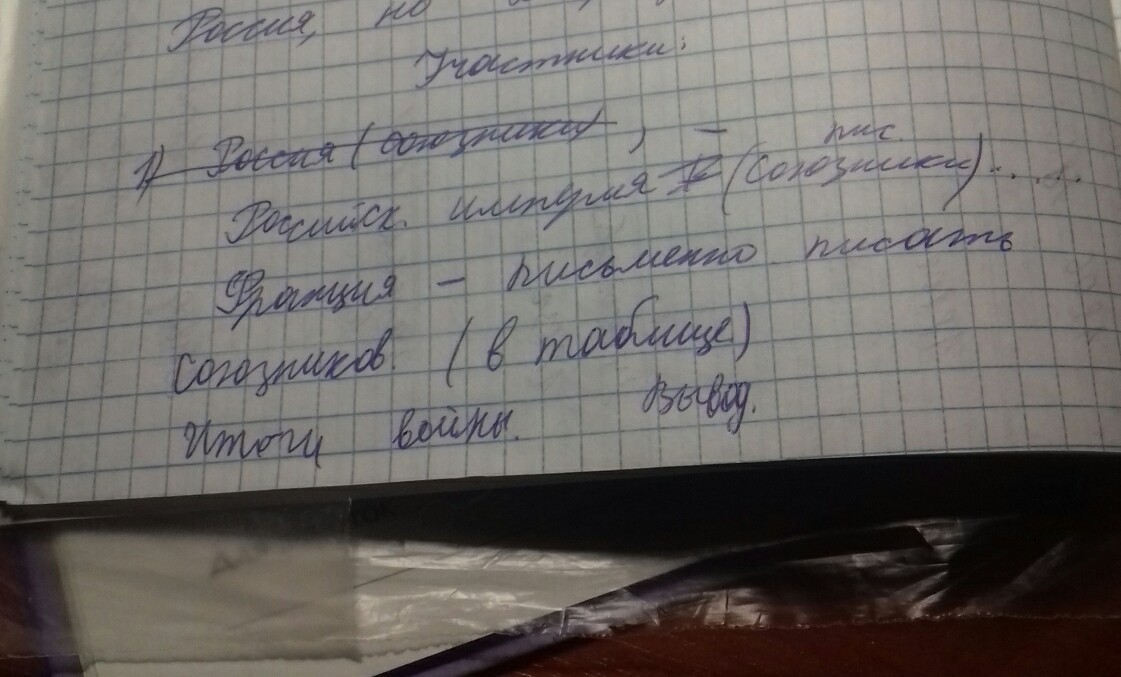 Россия, но
Участники:
1) Россия (союзники), – пис.
Российск. империя (союзники).....
Франция – письменно писать
союзников. (в таблице)
Итоги войны. Вывод.